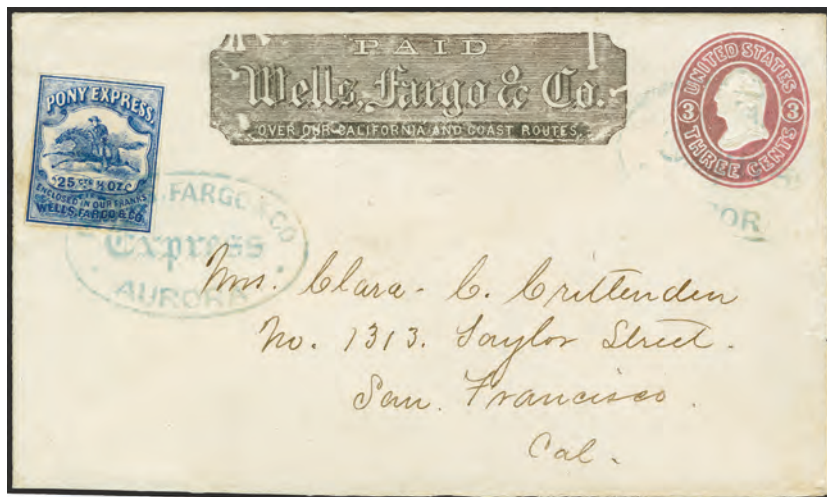 PAID
Wells, Fargo & Co.
OVER OUR CALIFORNIA AND COAST ROUTES.
UNITED STATES
3 3
THREE CENTS
PONY EXPRESS
25 Cts ½ OZ.
ENCLOSED IN OUR FRANKS
WELLS, FARGO & CO.
FARGO & CO
Express
AURORA
OR
Mrs. Clara. C. Crittenden
No. 1313. Taylor Street.
San. Francisco.
Cal.